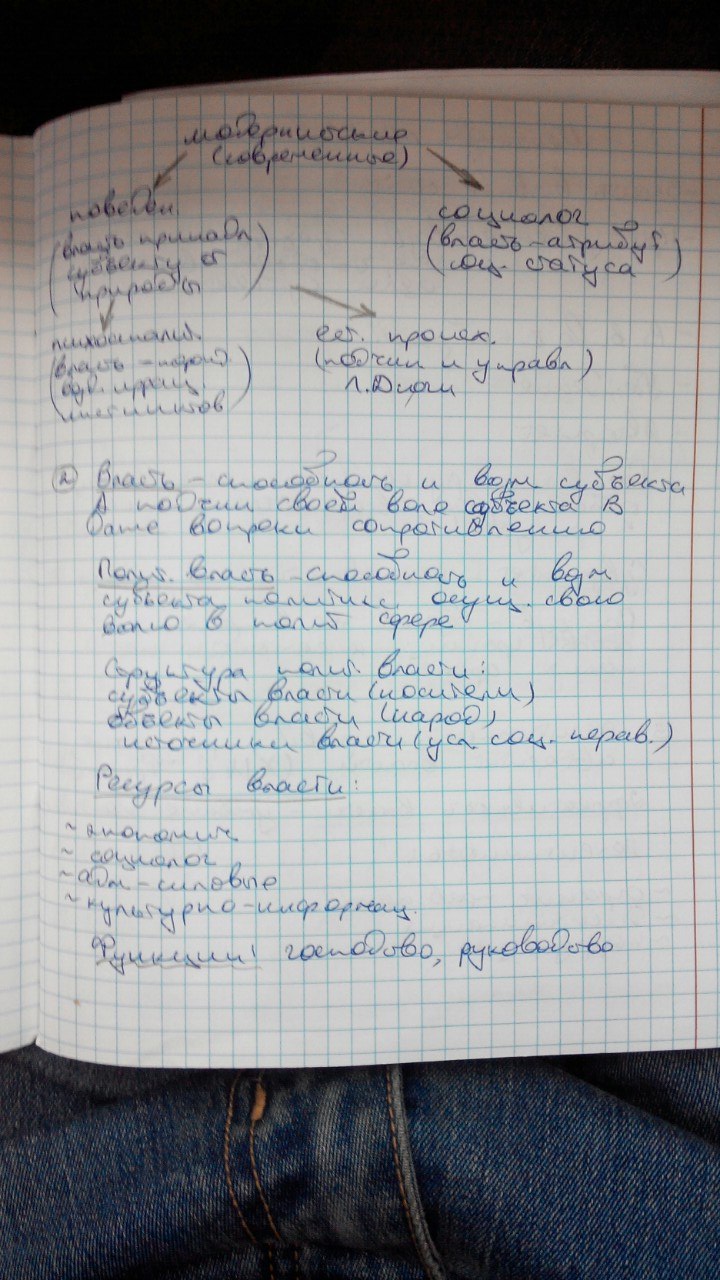 модернистские
(современные)
поведен.
социолог
(власть принадл
субъекту от
природы)
(власть-атрибут
соц. статуса)
психоаналит.
(власть - порожд
бдв. иррац.
инстинктов)
ест. происх.
(подчин и управл)
Л. Дюги
② Власть - способность и возм субъекта
А подчин своей воле субъекта В
даже вопреки сопротивлению
Полит. власть - способность и возм
субъекта политики осущ. свою
волю в полит сфере
Структура полит. власти:
субъекты власти (носители)
объекты власти (народ)
источники власти (усл. соц. нерав.)
Ресурсы власти:
~ экономич
~ социолог
~ адм-силовые
~ культурно-информац.
Функции: господство, руководство